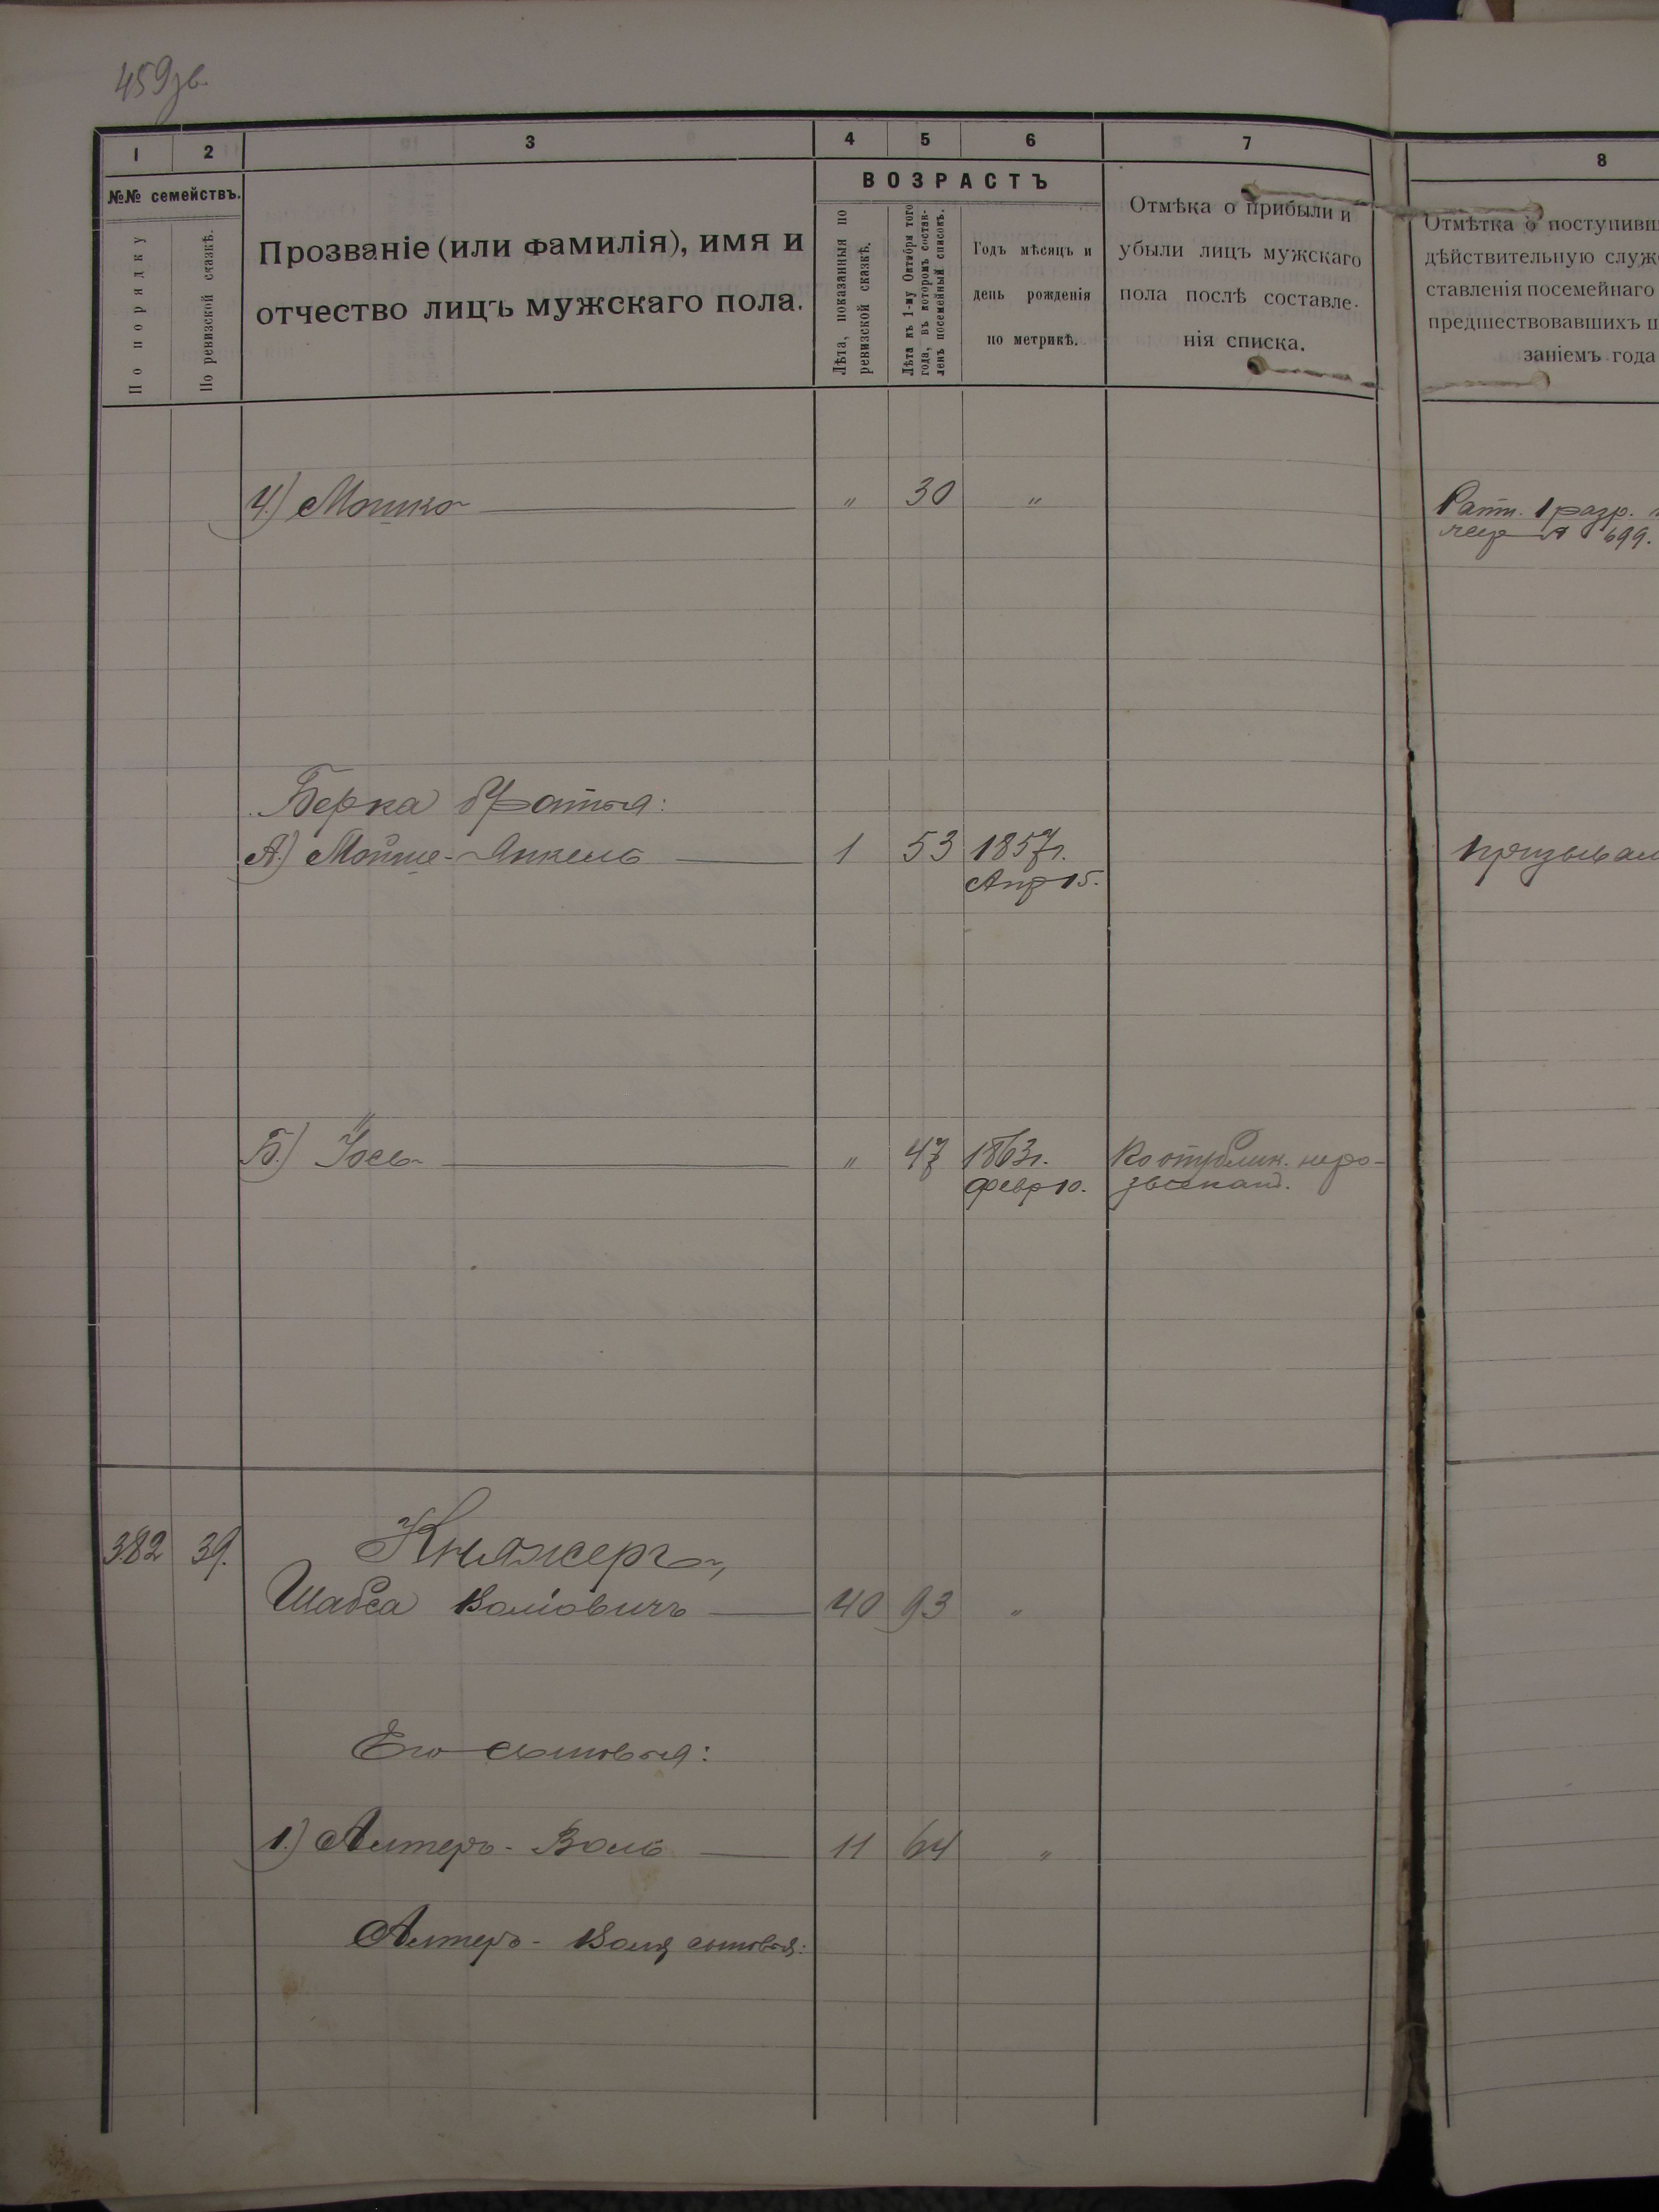 459 зв.
1 2 3 4 5 6 7 8
№№ семействъ.
По порядку
По ревизской сказкѣ.
Прозваніе (или фамилія), имя и
отчество лицъ мужскаго пола.
ВОЗРАСТЪ
Лѣта, показанныя по
ревизской сказкѣ.
Лѣта къ 1-му Октября того
года, въ которомъ состав-
ленъ посемейный списокъ.
Годъ мѣсяцъ и
день рожденія
по метрикѣ.
Отмѣка о прибыли и
убыли лицъ мужскаго
пола послѣ составле-
нія списка.
Отмѣтка о поступивш
дѣйствительную служ
ставленія посемейнаго
предшествовавшихъ п
заніемъ года
4.) Мошко " 30 "
Ратн. 1 разр.
699.
Берка братья:
А.) Мойше-Янкель 1 53 1857г.
Апр 15.
призывал
Б.) Іосъ " 47 1863г.
февр 10.
по отублик. неро-
зыскан.
382 39. Княжеръ,
Шабса Воліовичъ 40 93 "
Его сыновья:
1.) Алтеръ-Воль 11 64 "
Алтеръ-Воля сыновья: